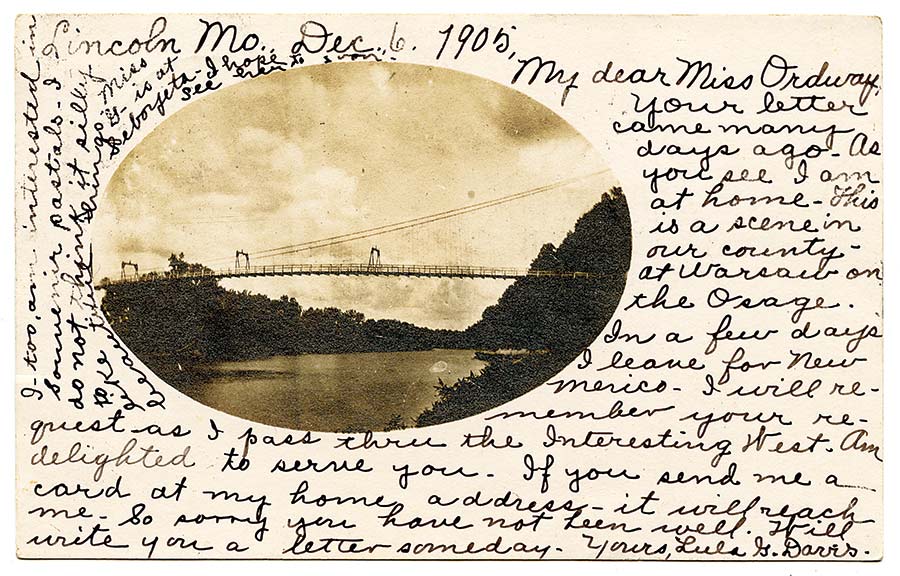 Lincoln Mo. Dec. 6. 1905,
My dear Miss Ordway.
Your letter
came many
days ago - As
you see I am
at home - This
is a scene in
our county -
at Warsaw on
the Osage.
In a few days
I leave for New
Mexico - I will re-
member your re-
quest as I pass thru the Interesting West - Am
delighted to serve you - If you send me a
card at my home address - it will reach
me - So sorry you have not been well. Will
write you a letter someday - Yours, Lula G. Davis.
I too, am interested in
Souvenir postals - I
do not think it silly
to
Miss
G. is at
I hope
see her soon.